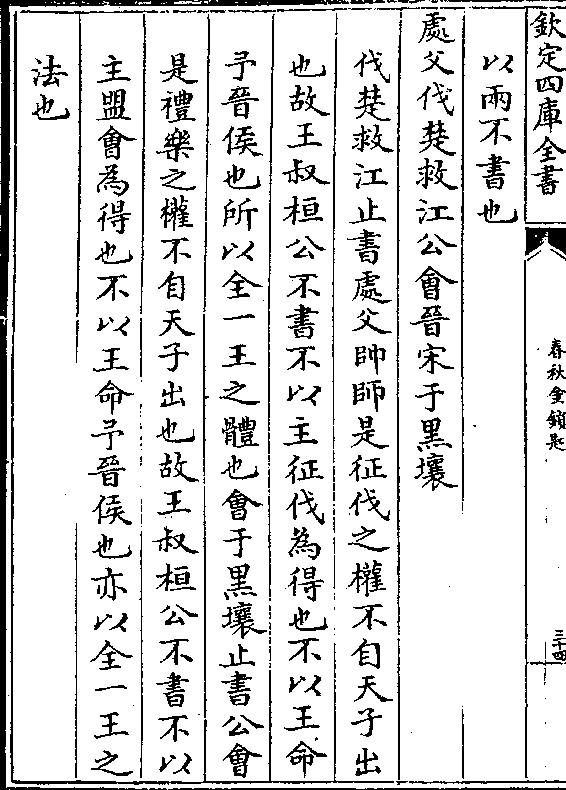 欽定四庫全書
春秋金鎖匙
三十四
以兩不書也
處父伐楚救江公會晉宋于黑壤
伐楚救江止書處父帥師是征伐之權不自天子出
也故王叔桓公不書不以主征伐為得也不以王命
予晉侯也所以全一王之體也會于黑壤止書公會
是禮樂之權不自天子出也故王叔桓公不書不以
主盟會為得也不以王命予晉侯也亦以全一王之
法也